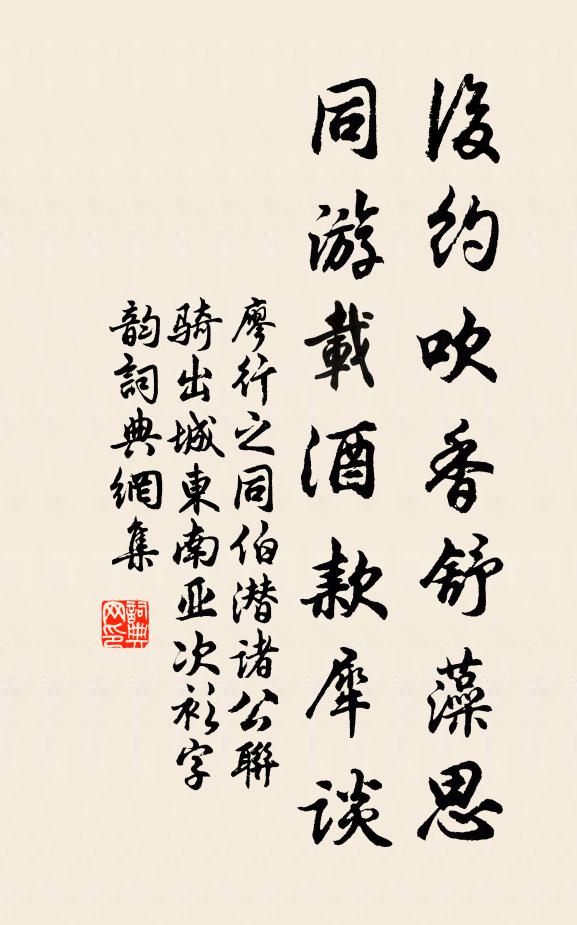 後約吹香舒藻思
同游載酒款犀談
廖行之同伯潜诸公聯
骑出城東南亚次衫字
韵詞典網集
詞典
网印